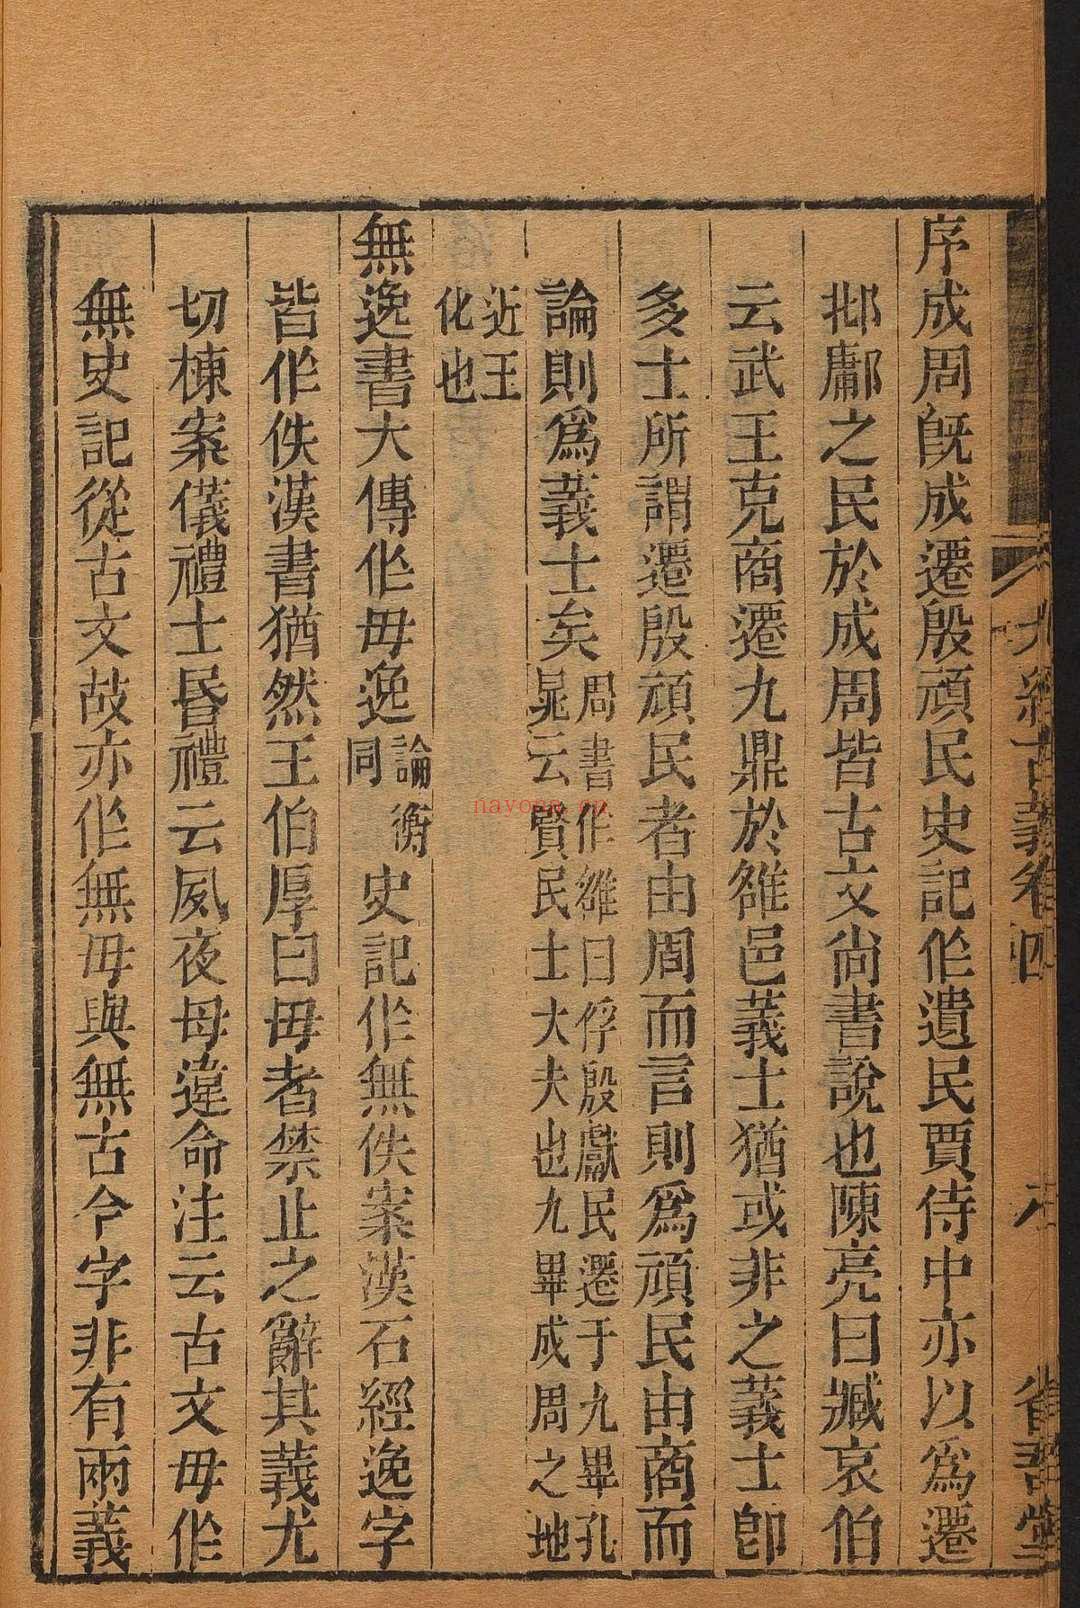 序成周旣成遷殷頑民史記作遺民賈侍中亦以爲遷
邶鄘之民於成周皆古文尙書說也陳亮曰臧哀伯
云武王克商遷九鼎於雒邑義士猶或非之義士卽
多士所謂遷殷頑民者由周而言則爲頑民由商而
論則爲義士矣
周書作雒曰俘殷獻民遷于九畢孔
晁云賢民士大夫也九畢成周之地
近王
化也
無逸書大傳作毋逸
論衡
同
史記作無佚案漢石經逸字
皆作佚漢書猶然王伯厚曰毋者禁止之辭其義尤
切棟案儀禮士昏禮云夙夜毋違命注云古文毋作
無史記從古文故亦作無毋與無古今字非有兩義
九經古義卷四
省吾堂
nayona.cn